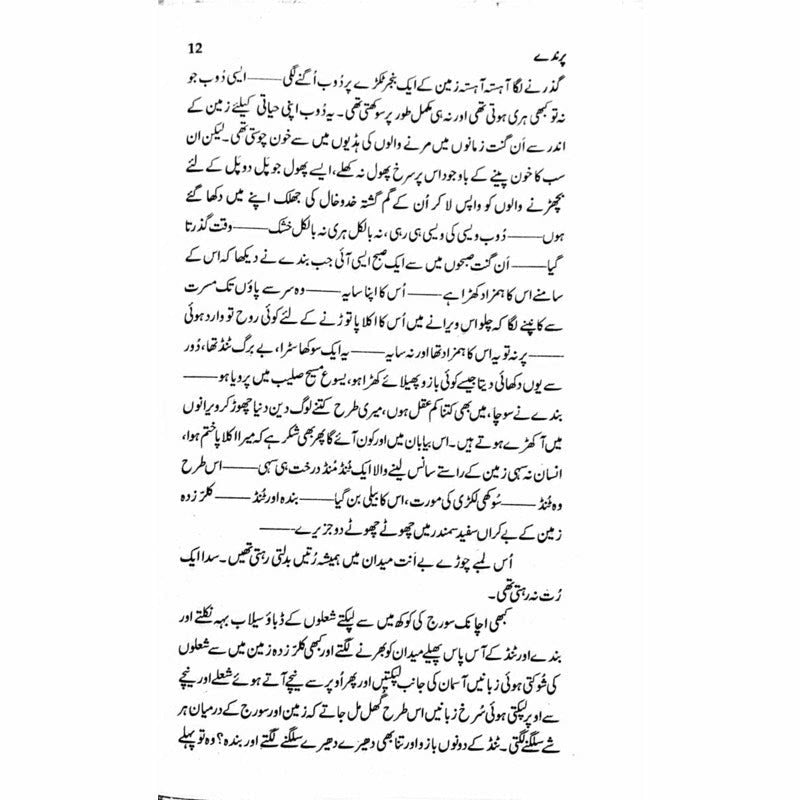 پرندے
12
گذرنے لگا آہستہ آہستہ زمین کے ایک بنجر ٹکڑے پر دُوب اُگنے لگی——ایسی دُوب جو
نہ تو کبھی ہری ہوتی تھی اور نہ ہی مکمل طور پر سوکھتی تھی۔ یہ دُوب اپنی حیاتی کیلئے زمین کے
اندر سے اَن گنت زمانوں میں مرنے والوں کی ہڈیوں میں سے خون چوستی تھی۔ لیکن ان
سب کا خون پینے کے باوجود اس پر سرخ پھول نہ کھلے، ایسے پھول جو پَل دو پَل کے لئے
بچھڑنے والوں کو واپس لا کر اُن کے گم گشتہ خدوخال کی جھلک اپنے میں دکھا گئے
ہوں——دُوب ویسی کی ویسی ہی رہی، نہ بالکل ہری نہ بالکل خشک——وقت گذرتا
گیا——اَن گنت صبحوں میں سے ایک صبح ایسی آئی جب بندے نے دیکھا کہ اس کے
سامنے اس کا ہمزاد کھڑا ہے——اُس کا اپنا سایہ——وہ سر سے پاؤں تک مسرت
سے کانپنے لگا کہ چلو اس ویرانے میں اُس کا اکلاپا توڑنے کے لئے کوئی روح تو وارد ہوئی
——پر نہ تو یہ اس کا ہمزاد تھا اور نہ سایہ——یہ ایک سوکھا سڑا، بے برگ ٹنڈ تھا، دُور
سے یوں دکھائی دیتا جیسے کوئی بازو پھیلائے کھڑا ہو، یسوع مسیح صلیب میں پرویا ہو——
بندے نے سوچا، میں بھی کتنا کم عقل ہوں، میری طرح کتنے لوگ دین دنیا چھوڑ کر ویرانوں
میں آ کھڑے ہوتے ہیں۔ اس بیابان میں اور کون آئے گا پھر بھی شکر ہے کہ میرا اکلاپا ختم ہوا،
انسان نہ سہی زمین کے راستے سانس لینے والا ایک ٹنڈ مُنڈ درخت ہی سہی——اس طرح
وہ ٹنڈ——سُوکھی لکڑی کی مورت، اس کا بیلی بن گیا——بندہ اور ٹنڈ——کلرّ زدہ
زمین کے بے کراں سفید سمندر میں چھوٹے چھوٹے دو جزیرے——
اُس لمبے چوڑے بے اَنت میدان میں ہمیشہ رُتیں بدلتی رہتی تھیں۔ سدا ایک
رُت نہ رہتی تھی۔
کبھی اچانک سورج کی کوکھ میں سے لپکتے شعلوں کے ڈباؤ سیلاب بہہ نکلتے اور
بندے اور ٹنڈ کے آس پاس پھیلے میدان کو بھرنے لگتے اور کبھی کلرّ زدہ زمین میں سے شعلوں
کی شُوکتی ہوئی زبانیں آسمان کی جانب لپکتیں اور پھر اُوپر سے نیچے آتے ہوئے شعلے اور نیچے
سے اوپر لپکتی ہوئی سُرخ زبانیں اس طرح گھل مل جاتے کہ زمین اور سورج کے درمیان ہر
شے سلگنے لگتی۔ ٹنڈ کے دونوں بازو اور تنا بھی دھیرے دھیرے سلگنے لگتے اور بندہ؟ وہ تو پہلے